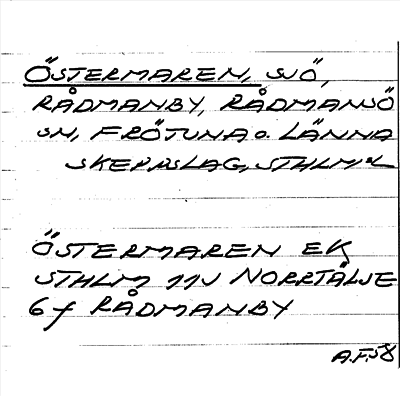 ÖSTERMAREN, SJÖ,
RÅDMANBY, RÅDMANSÖ
SN, FRÖTUNA O. LÄNNA
SKEPPSLAG, STHLMSL
ÖSTERMAREN EK
STHLM 11V NORRTÄLJE
6 f RÅDMANBY
A.F.58